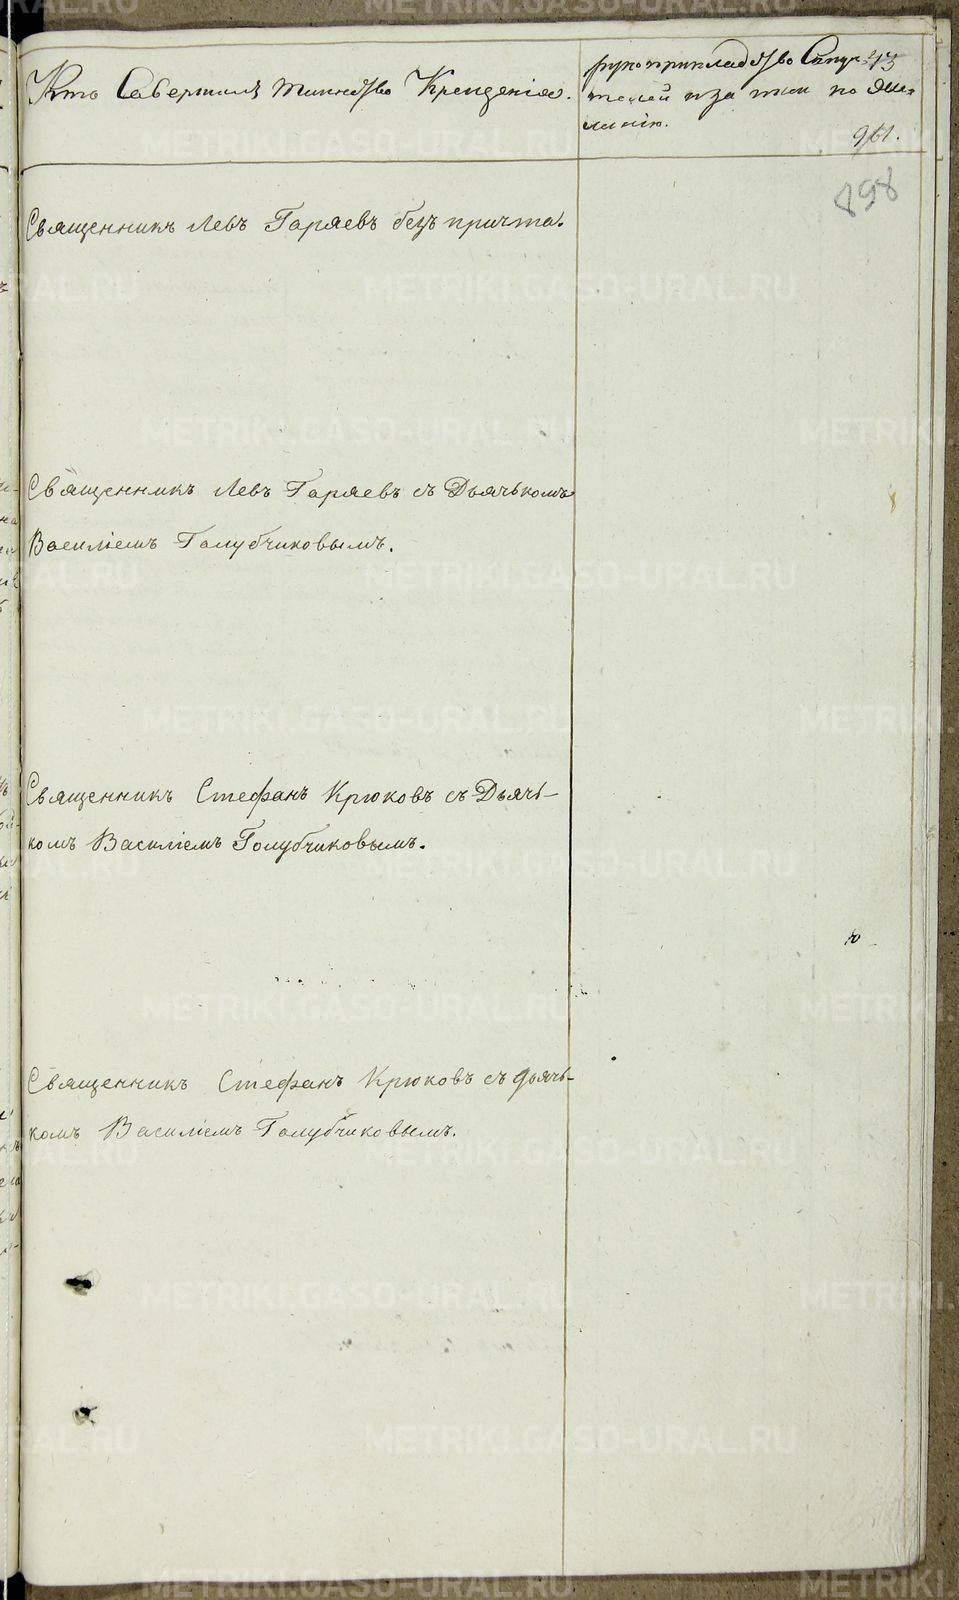 Кто Совершалъ таинство Крещенія.
рукоприкладство Свидѣ 43
телей по
ланію.
961.
898
Священникъ Левъ Гаряевъ безъ причта.
Священникъ Левъ Гаряевъ съ Дьячькомъ
Василіемъ Голубчиковымъ.
Священникъ Стефанъ Крюковъ съ Дьячь-
комъ Василіемъ Голубчиковымъ.
Священникъ Стефанъ Крюковъ съ дьячь-
комъ Василіемъ Голубчиковымъ.
METRIKI.GASO-URAL.RU